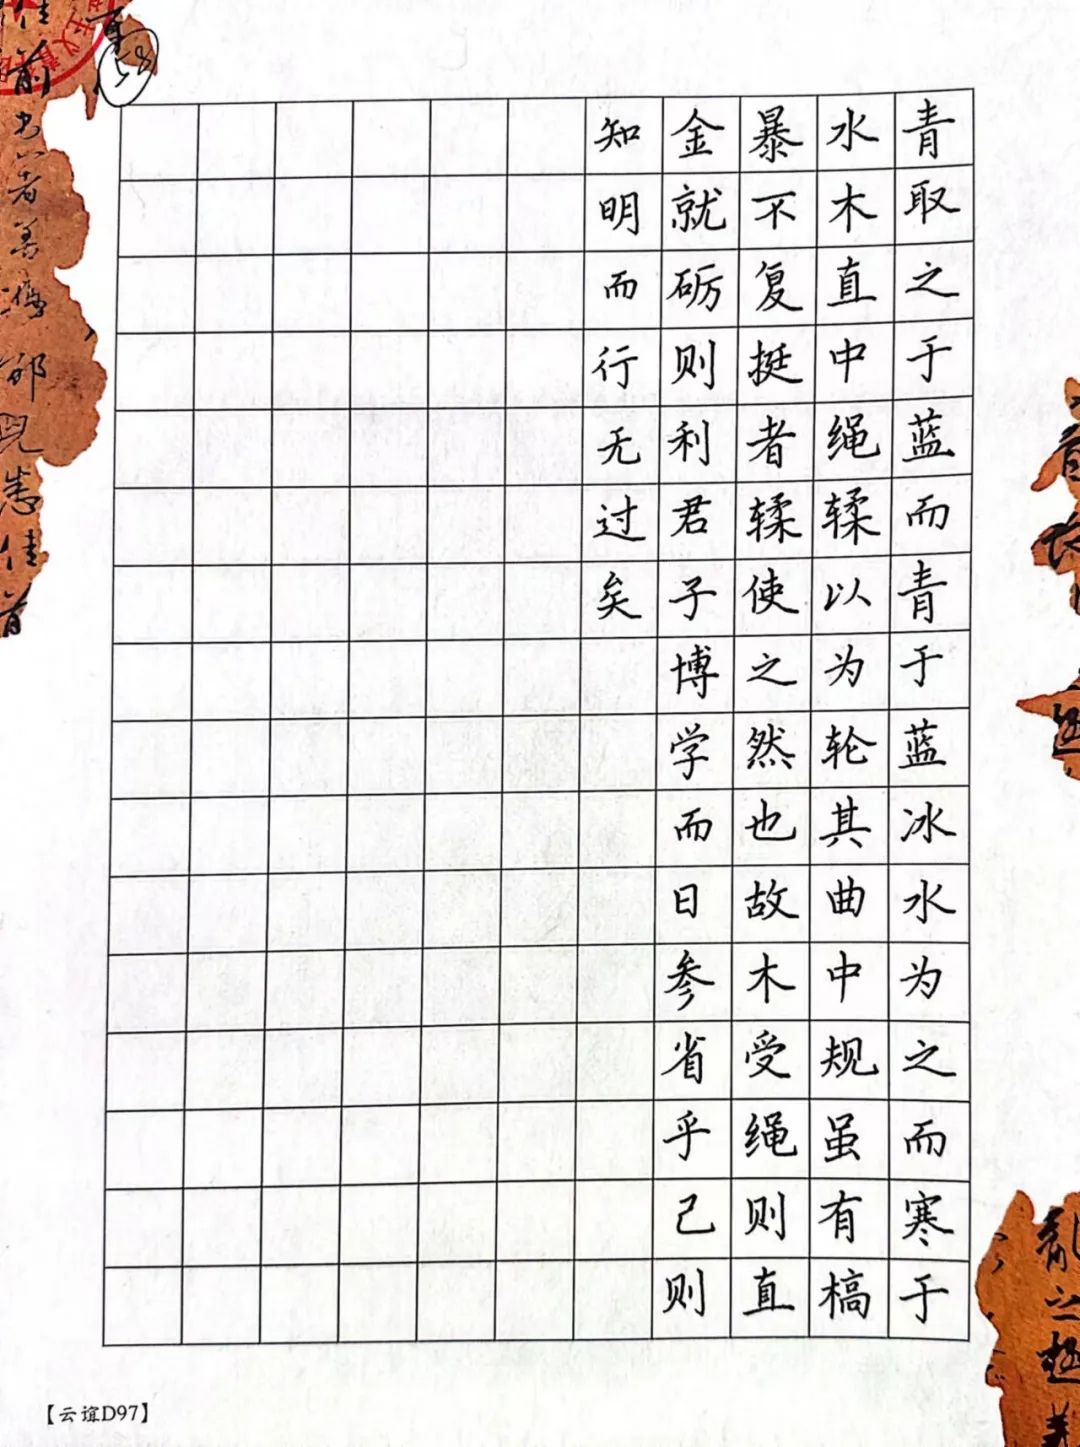 青取之于蓝而青于蓝冰水为之而寒于
水木直中绳𫐓以为轮其曲中规虽有槁
暴不复挺者𫐓使之然也故木受绳则直
金就砺则利君子博学而日参省乎己则
知明而行无过矣
【云谊D97】